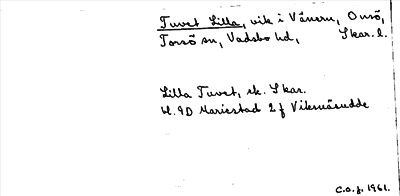 Tuvet Lilla, vik i Vänern, Onsö,
Torsö sn, Vadsbo hd, Skar. l.
Lilla Tuvet, sk. Skar.
bl. 9D Mariestad 2 f Viksnäsudde
C.O.f. 1961.